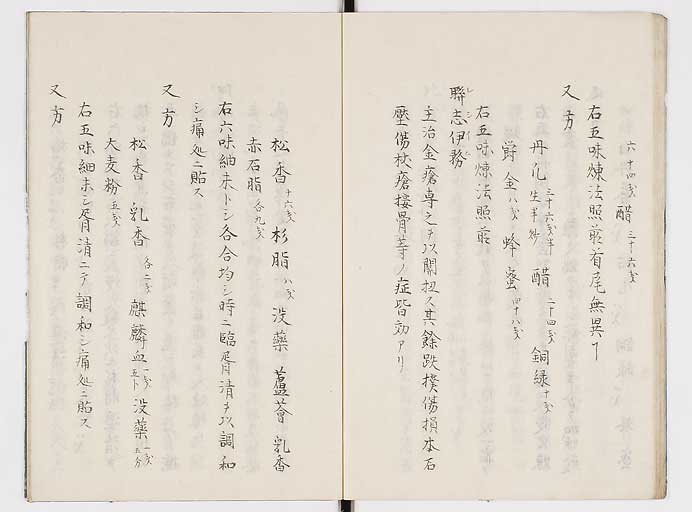 六十四戔 醋 三十六戔
右五味煉法照前首尾無異ㇳ
又方
丹凡 三十六戔半 生半炒 醋 二十四戔 銅緑 十戔
欝金 八戔 蜂蜜 四十八戔
右五味煉法照前
聯志伊務
主治金瘡専之ヲ以關扭ス其餘跌撲傷損木石
壓傷杖瘡接骨等ノ症皆効アリ
松香 十六戔 杉脂 八戔 没藥 蘆薈 乳香
赤石脂 各九戔
右六味細末トシ各合均シ時ニ臨厝清ヲ以調和
シ痛処ニ貼ス
又方
松香 乳香 各二戔 麒麟血 一戔五卜 没藥 一戔五分
大麦粉 五戔
右五味細末シ厝清ニテ調和シ痛処ニ貼ス
又方